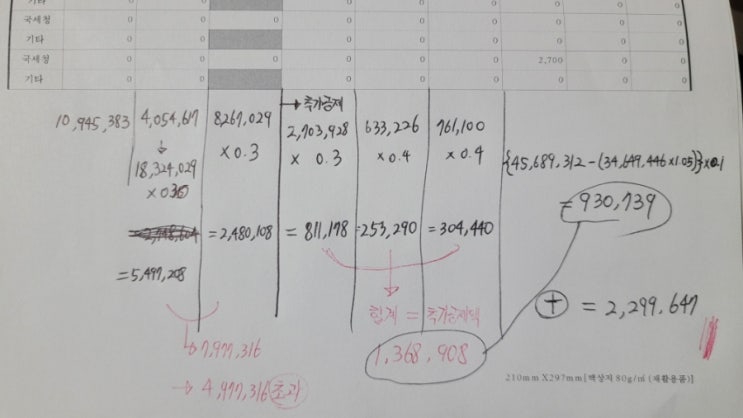 기타 0 0 0 0 0 0 0
국세청 0 0 0 0 0 0 0
기타 0 0 0 0 0 0 0
국세청 0 0 0 0 2,700 0 0
기타 0 0 0 0 0 0 0
→ 추가공제
10,945,383 4,054,617 8,267,029 2,703,928 633,226 761,100
↓
18,324,029 ×0.3 × 0.3 ×0.4 ×0.4 {45,689,312-(34,649,446×1.05)}×0.1
×0.30
= 930,739
=2,480,108 = 811,178 =253,290 =304,440
=5,497,208
⊕ = 2,299,647
합계 = 추가공제액
→7,977,316
1,368,908
→ 4,977,316 초과
210mm X297mm[백상지 80g/㎡ (재활용품)]